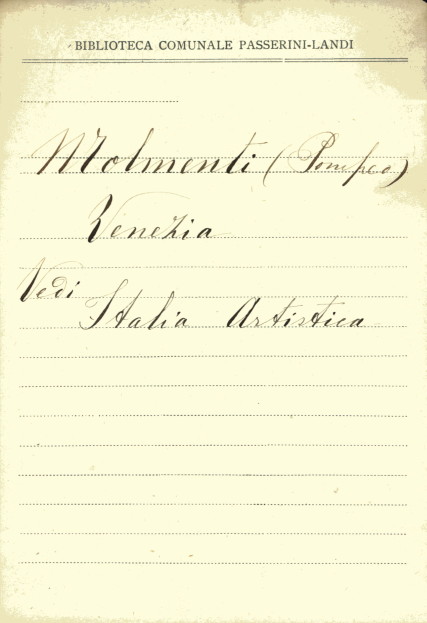 BIBLIOTECA COMUNALE PASSERINI-LANDI
Molmenti (Pompeo)
Venezia
Vedi
Italia Artistica